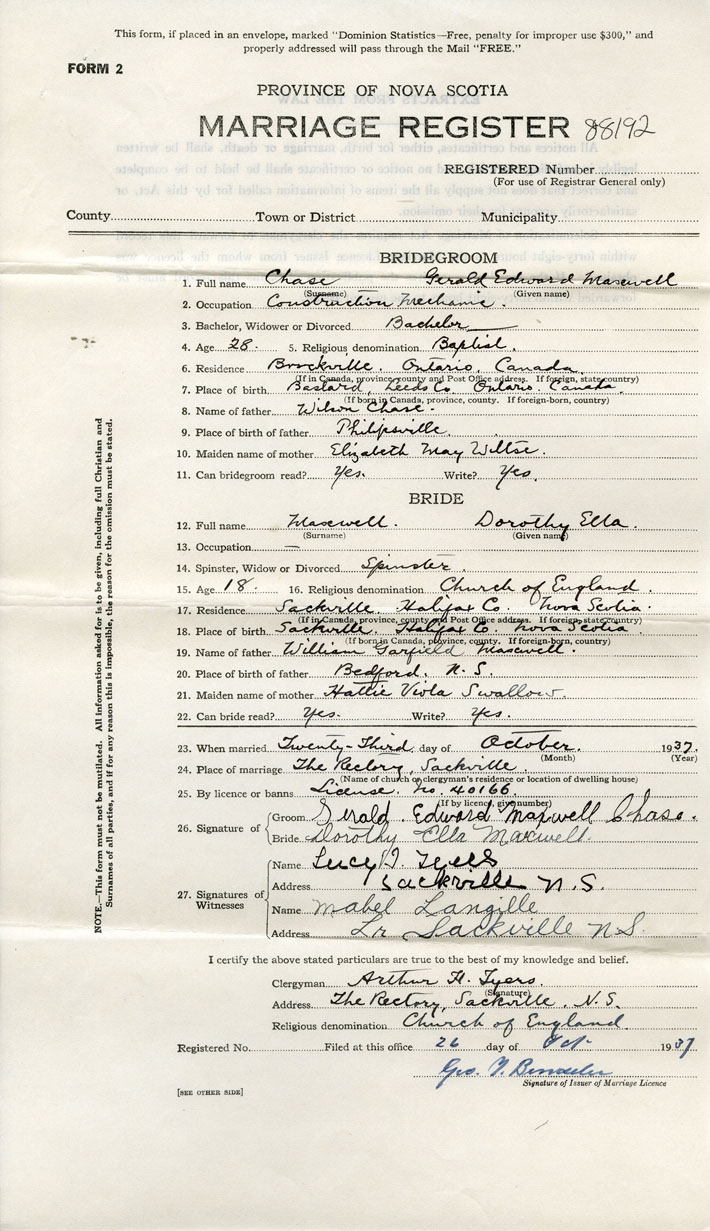 This form, if placed in an envelope, marked "Dominion Statistics—Free, penalty for improper use $300," and
properly addressed will pass through the Mail "FREE."
FORM 2
PROVINCE OF NOVA SCOTIA
MARRIAGE REGISTER 88192
REGISTERED Number
(For use of Registrar General only)
County Town or District Municipality
BRIDEGROOM
1. Full name Chase Gerald Edward Maxwell
(Surname) (Given name)
2. Occupation Construction Mechanic.
3. Bachelor, Widower or Divorced Bachelor
4. Age 28. 5. Religious denomination Baptist.
6. Residence Brockville. Ontario, Canada.
(If in Canada, province, county and Post Office address. If foreign, state country)
7. Place of birth Bastard, Leeds Co. Ontario. Canada
(If born in Canada, province, county. If foreign-born, country)
8. Name of father Wilson Chase.
9. Place of birth of father Philipsville.
10. Maiden name of mother Elizabeth May Wiltse.
11. Can bridegroom read? Yes. Write? Yes.
BRIDE
12. Full name Maxwell. Dorothy Ella.
(Surname) (Given name)
13. Occupation —
14. Spinster, Widow or Divorced Spinster.
15. Age 18. 16. Religious denomination Church of England.
17. Residence Sackville. Halifax Co. Nova Scotia.
(If in Canada, province, county and Post Office address. If foreign, state country)
18. Place of birth Sackville. Halifax Co. Nova Scotia
(If born in Canada, province, county. If foreign-born, country)
19. Name of father William Garfield Maxwell.
20. Place of birth of father Bedford. N. S.
21. Maiden name of mother Hattie Viola Swallow.
22. Can bride read? Yes. Write? Yes.
23. When married Twenty-Third day of October. 1937.
(Month) (Year)
24. Place of marriage The Rectory, Sackville.
(Name of church or clergyman's residence or location of dwelling house)
25. By licence or banns License. No. 40166.
(If by licence, give number)
26. Signature of Groom Gerald Edward Maxwell Chase.
Bride Dorothy Ella Maxwell.
27. Signatures of Witnesses
Name Lucy J. Tyers
Address Sackville N.S.
Name Mabel Langille
Address Lr Sackville N.S.
I certify the above stated particulars are true to the best of my knowledge and belief.
Clergyman Arthur H. Tyers.
(Signature)
Address The Rectory, Sackville. N.S.
Religious denomination Church of England.
Registered No. Filed at this office 26 day of Oct. 1937
Geo.
Signature of Issuer of Marriage Licence
[SEE OTHER SIDE]
NOTE.—This form must not be mutilated. All information asked for is to be given, including full Christian and
Surnames of all parties, and if for any reason this is impossible, the reason for the omission must be stated.